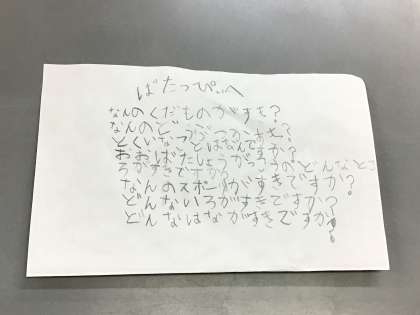 ぱたっぴぃへ
なんのくだものがすき?
なんのどうぶつがすき?
とくいなことはなんですか?
おおばたしょうがっこうのどんなとこ
ろがすきですか?
なんのスポーツがすきですか?
どんないろがすきですか?
どんなはながすきですか?